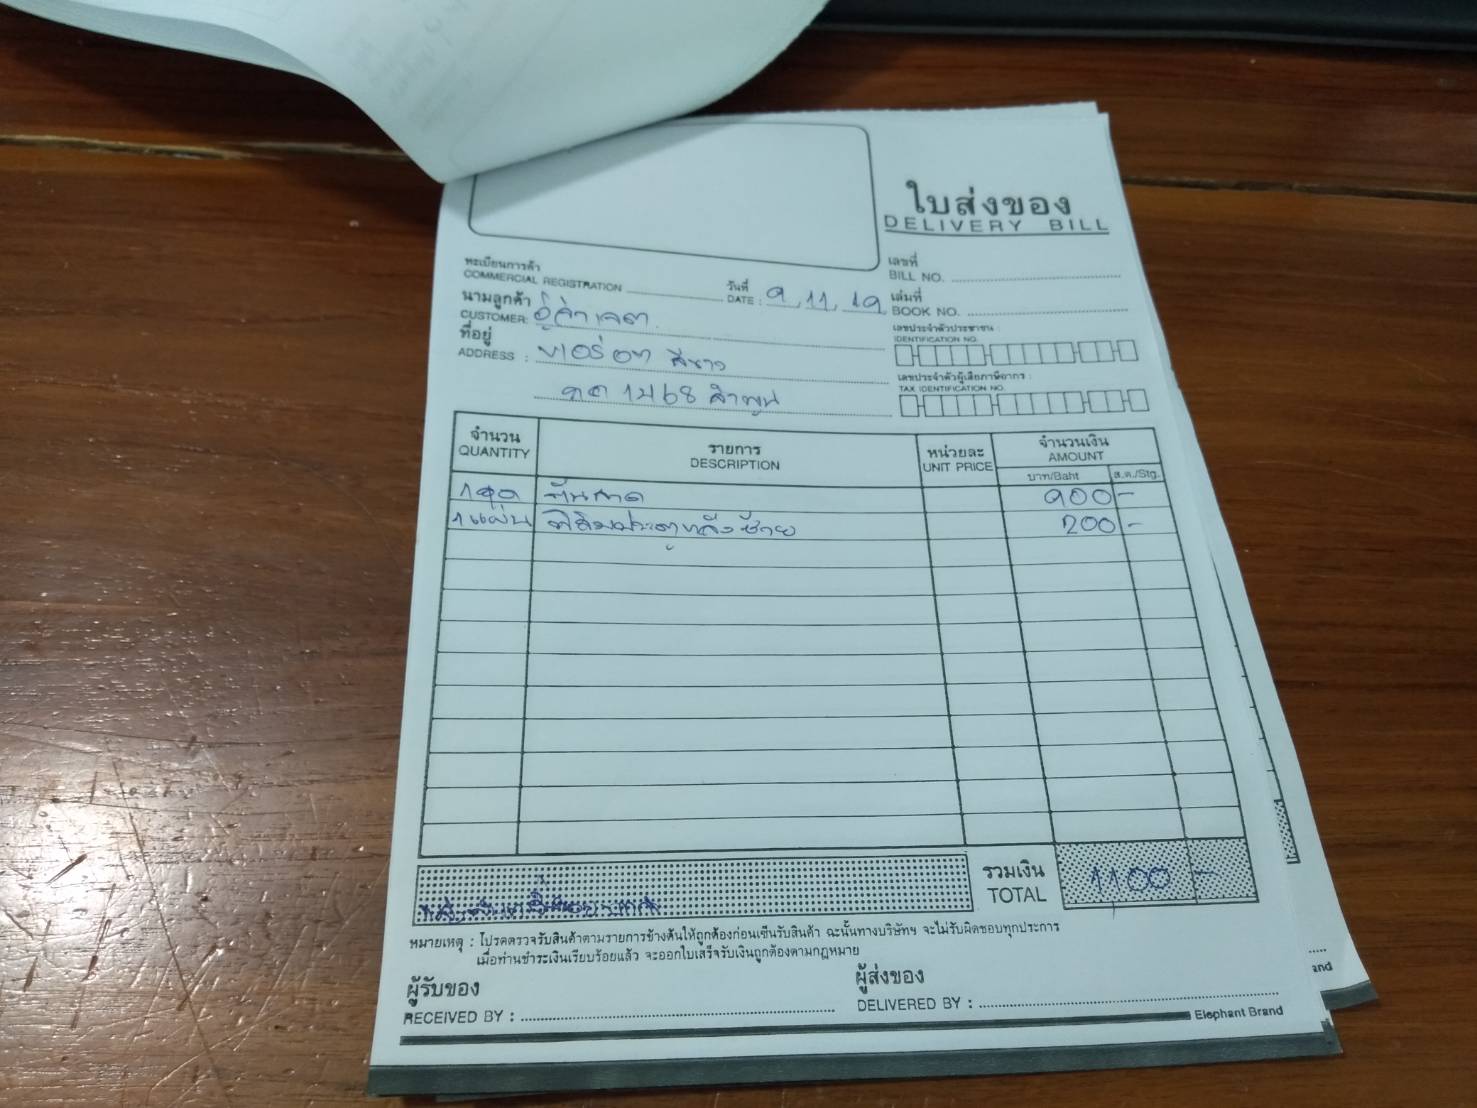 ใบส่งของ
DELIVERY BILL
ทะเบียนการค้า
COMMERCIAL REGISTRATION
วันที่
DATE : 9, 11, 19
เลขที่
BILL NO.
นามลูกค้า
CUSTOMER: อู่คำเจดา
เล่มที่
BOOK NO.
ที่อยู่
ADDRESS :
สีขาว
ลำพูน
เลขประจำตัวประชาชน :
IDENTIFICATION NO.
เลขประจำตัวผู้เสียภาษีอากร :
TAX IDENTIFICATION NO.
จำนวน รายการ หน่วยละ จำนวนเงิน
QUANTITY DESCRIPTION UNIT PRICE AMOUNT
บาท/Baht ส.ต./Stg.
1 ชุด กันสาด 900 -
1 แผ่น ฟิล์มประตูหลังซ้าย 200 -
รวมเงิน
TOTAL 1100 -
หมายเหตุ : โปรดตรวจรับสินค้าตามรายการข้างต้นให้ถูกต้องก่อนเซ็นรับสินค้า ฉะนั้นทางบริษัทฯ จะไม่รับผิดชอบทุกประการ
เมื่อท่านชำระเงินเรียบร้อยแล้ว จะออกใบเสร็จรับเงินถูกต้องตามกฎหมาย
ผู้รับของ
RECEIVED BY :
ผู้ส่งของ
DELIVERED BY :
Elephant Brand
and